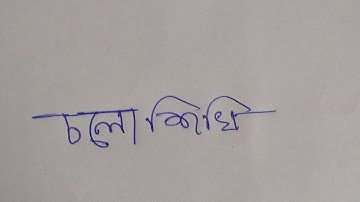 চলো শিখি